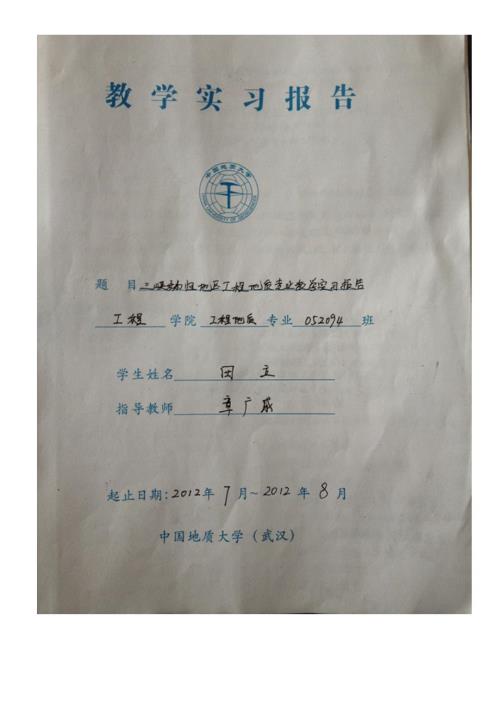 教学实习报告
中国地质大学
题 目 三峡秭归地区工程地质专业教学实习报告
工程 学院 工程地质 专业 052094 班
学生姓名 田立
指导教师 章广成
起止日期:2012年7月~2012年8月
中国地质大学(武汉)